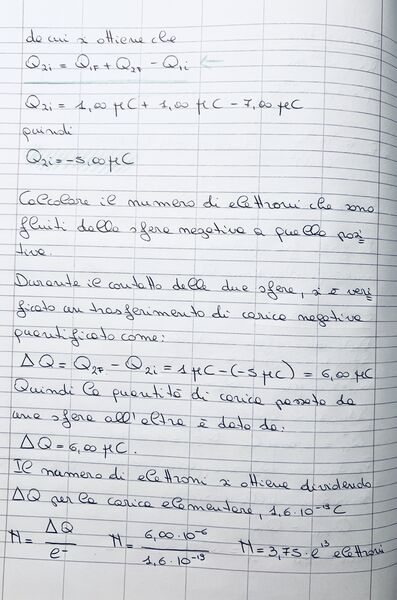 da cui si ottiene che
Q2i = Q1f + Q2f - Q1i ←
Q2i = 1,00 μC + 1,00 μC - 7,00 μC
quindi
Q2i = -5,00 μC
Calcolare il numero di elettroni che sono
fluiti dalla sfera negativa a quella posi
tiva.
Durante il contatto delle due sfere, si è veri
ficato un trasferimento di carica negativa
quantificato come:
ΔQ = Q2f - Q2i = 1 μC - (-5 μC) = 6,00 μC
Quindi la quantità di carica passata da
una sfera all'altra è data da:
ΔQ = 6,00 μC.
Il numero di elettroni si ottiene dividendo
ΔQ per la carica elementare, 1,6·10⁻¹⁹C
N = ΔQ / e⁻ N = 6,00·10⁻⁶ / 1,6·10⁻¹⁹ N = 3,75·e¹³ elettroni